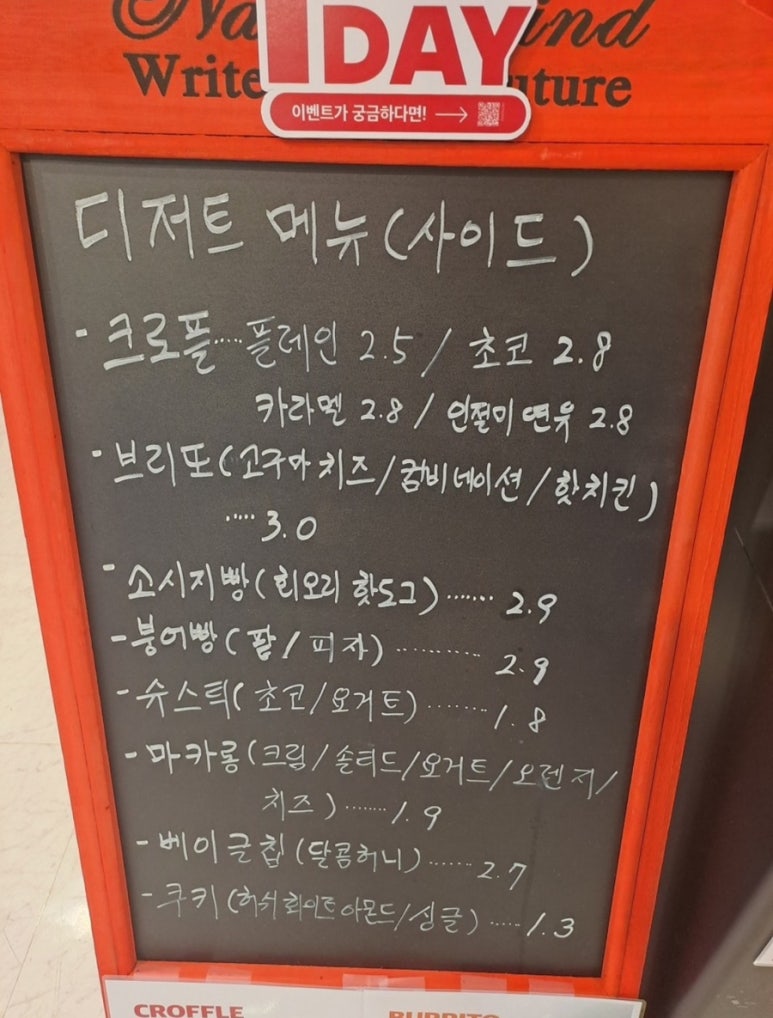 Na ind
1DAY
Write uture
이벤트가 궁금하다면! →
디저트 메뉴(사이드)
- 크로플.... 플레인 2.5 / 초코 2.8
카라멜 2.8 / 인절미연유 2.8
- 브리또(고구마치즈/컴비네이션/핫치킨)
..... 3.0
- 소시지빵(회오리 핫도그)....... 2.9
- 붕어빵(팥/피자).......... 2.9
- 슈스틱(초코/요거트)........ 1.8
- 마카롱(크림/솔티드/요거트/오렌지/
치즈)....... 1.9
- 베이글칩(달콤허니)...... 2.7
- 쿠키(허쉬화이트아몬드/싱글)..... 1.3
CROFFLE BURRITO